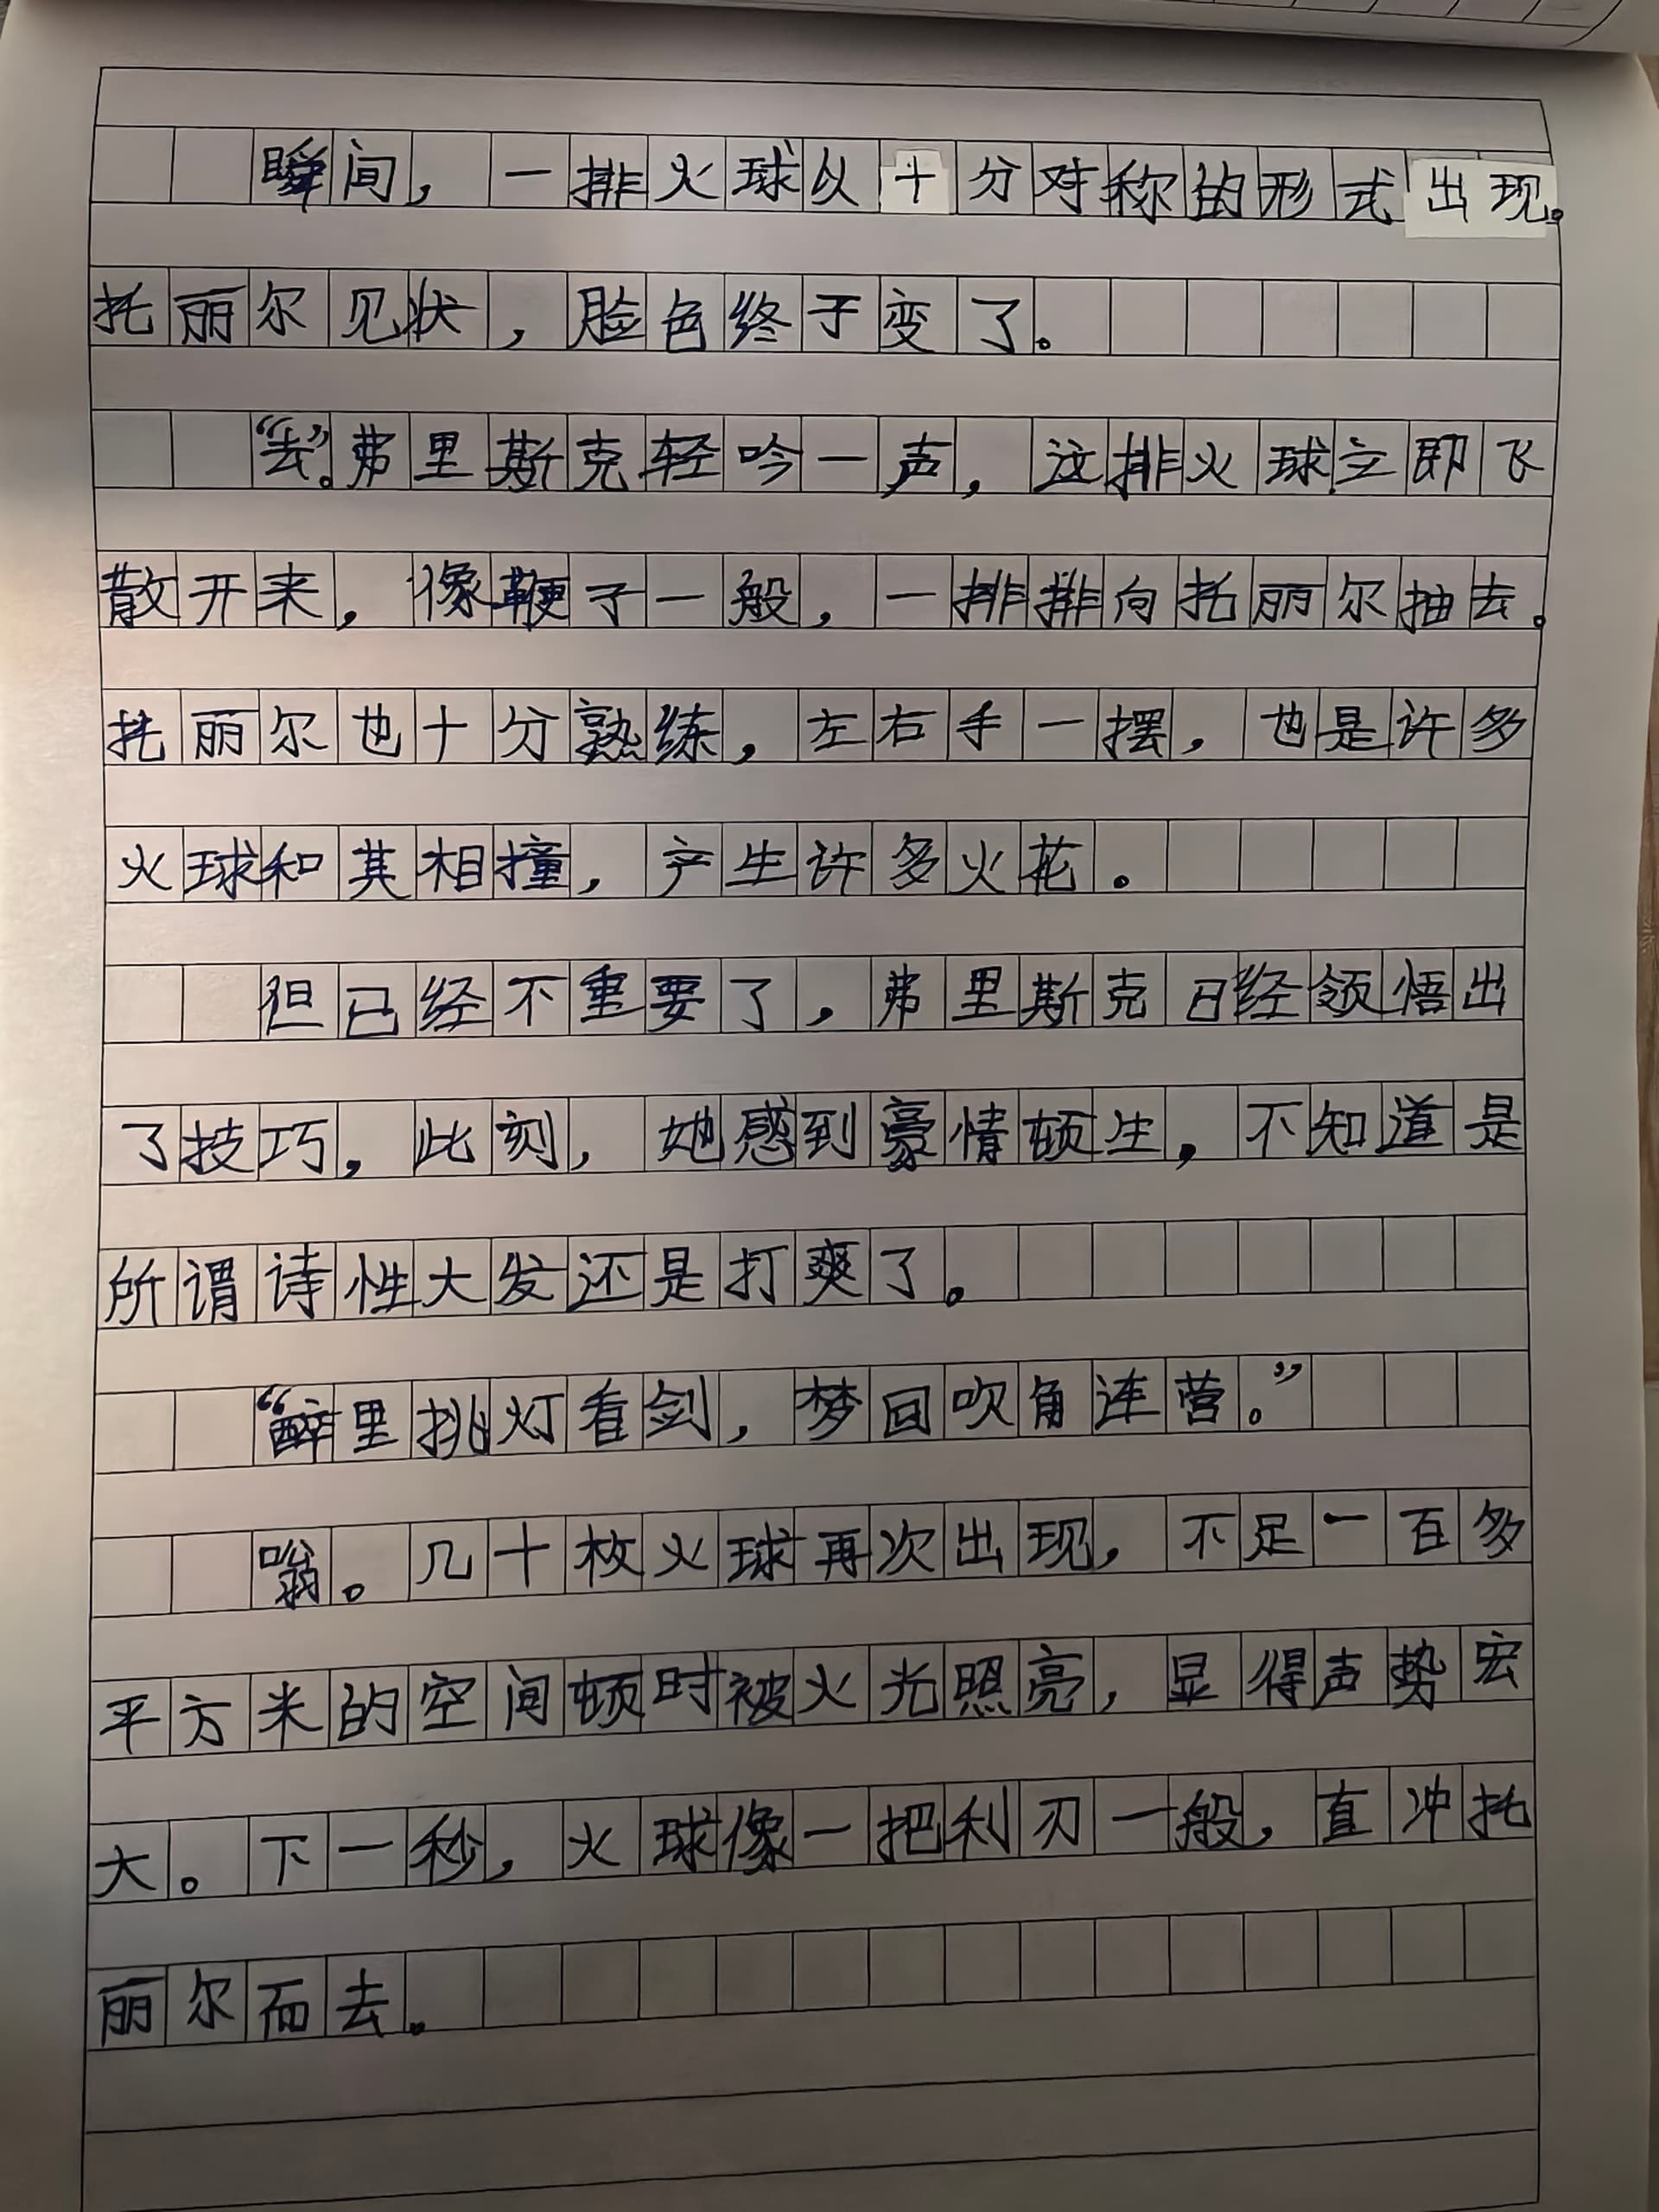 瞬间，一排火球以十分对称的形式出现。
托丽尔见状，脸色终于变了。
“去”。弗里斯克轻吟一声，这排火球立即飞
散开来，像鞭子一般，一排排向托丽尔抽去。
托丽尔也十分熟练，左右手一摆，也是许多
火球和其相撞，产生许多火花。
但已经不重要了，弗里斯克已经领悟出
了技巧，此刻，她感到豪情顿生，不知道是
所谓诗性大发还是打爽了。
“醉里挑灯看剑，梦回吹角连营。”
嗡。几十枚火球再次出现，不足一百多
平方米的空间顿时被火光照亮，显得声势宏
大。下一秒，火球像一把利刃一般，直冲托
丽尔而去。